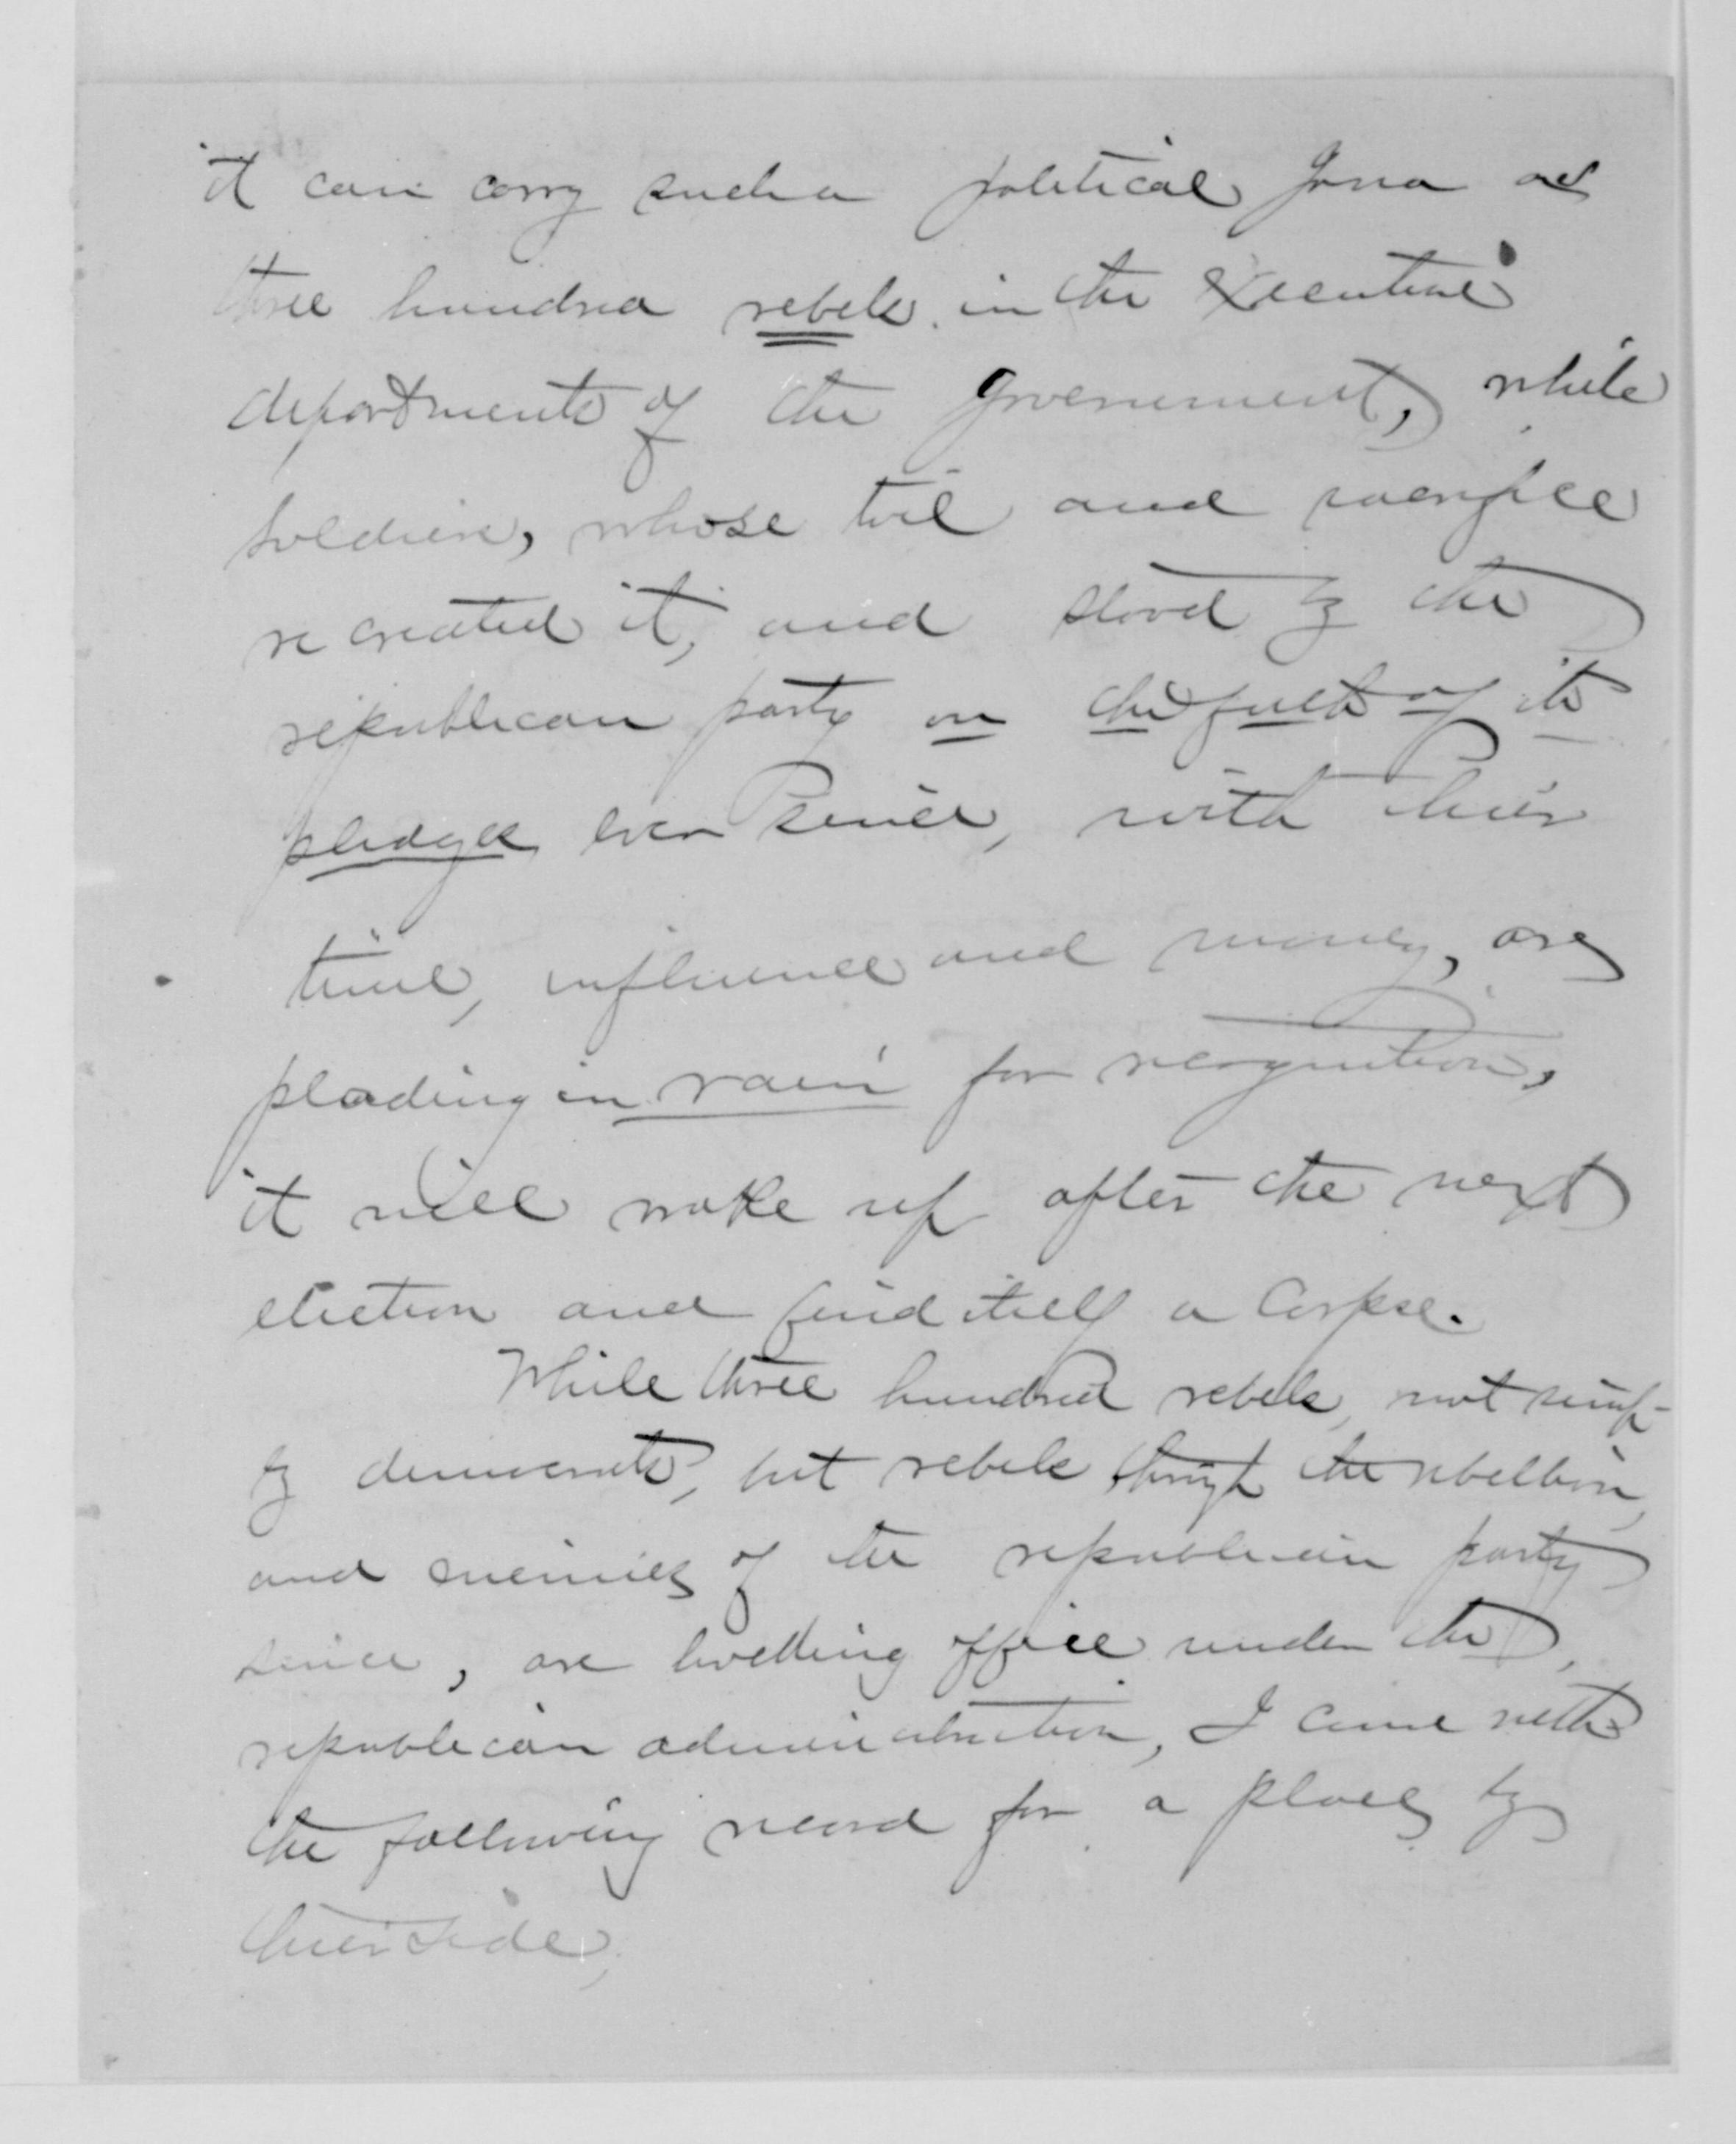 it can carry such a political Jona as
three hundred rebels in the Executive
departments of the government, while
soldiers, whose toil and sacrifice
re created it, and stood by the
republican party on the faith of its
pledges ever since, with their
time, influence and money, are
pleading in vain for recognition,
it will wake up after the next
election and find itself a Corpse.
While three hundred rebels, not simp-
ly democrats, but rebels through the rebellion,
and enemies of the republican party
since, are holding office under the
republican administration, I come with
the following record for a place by
their side,